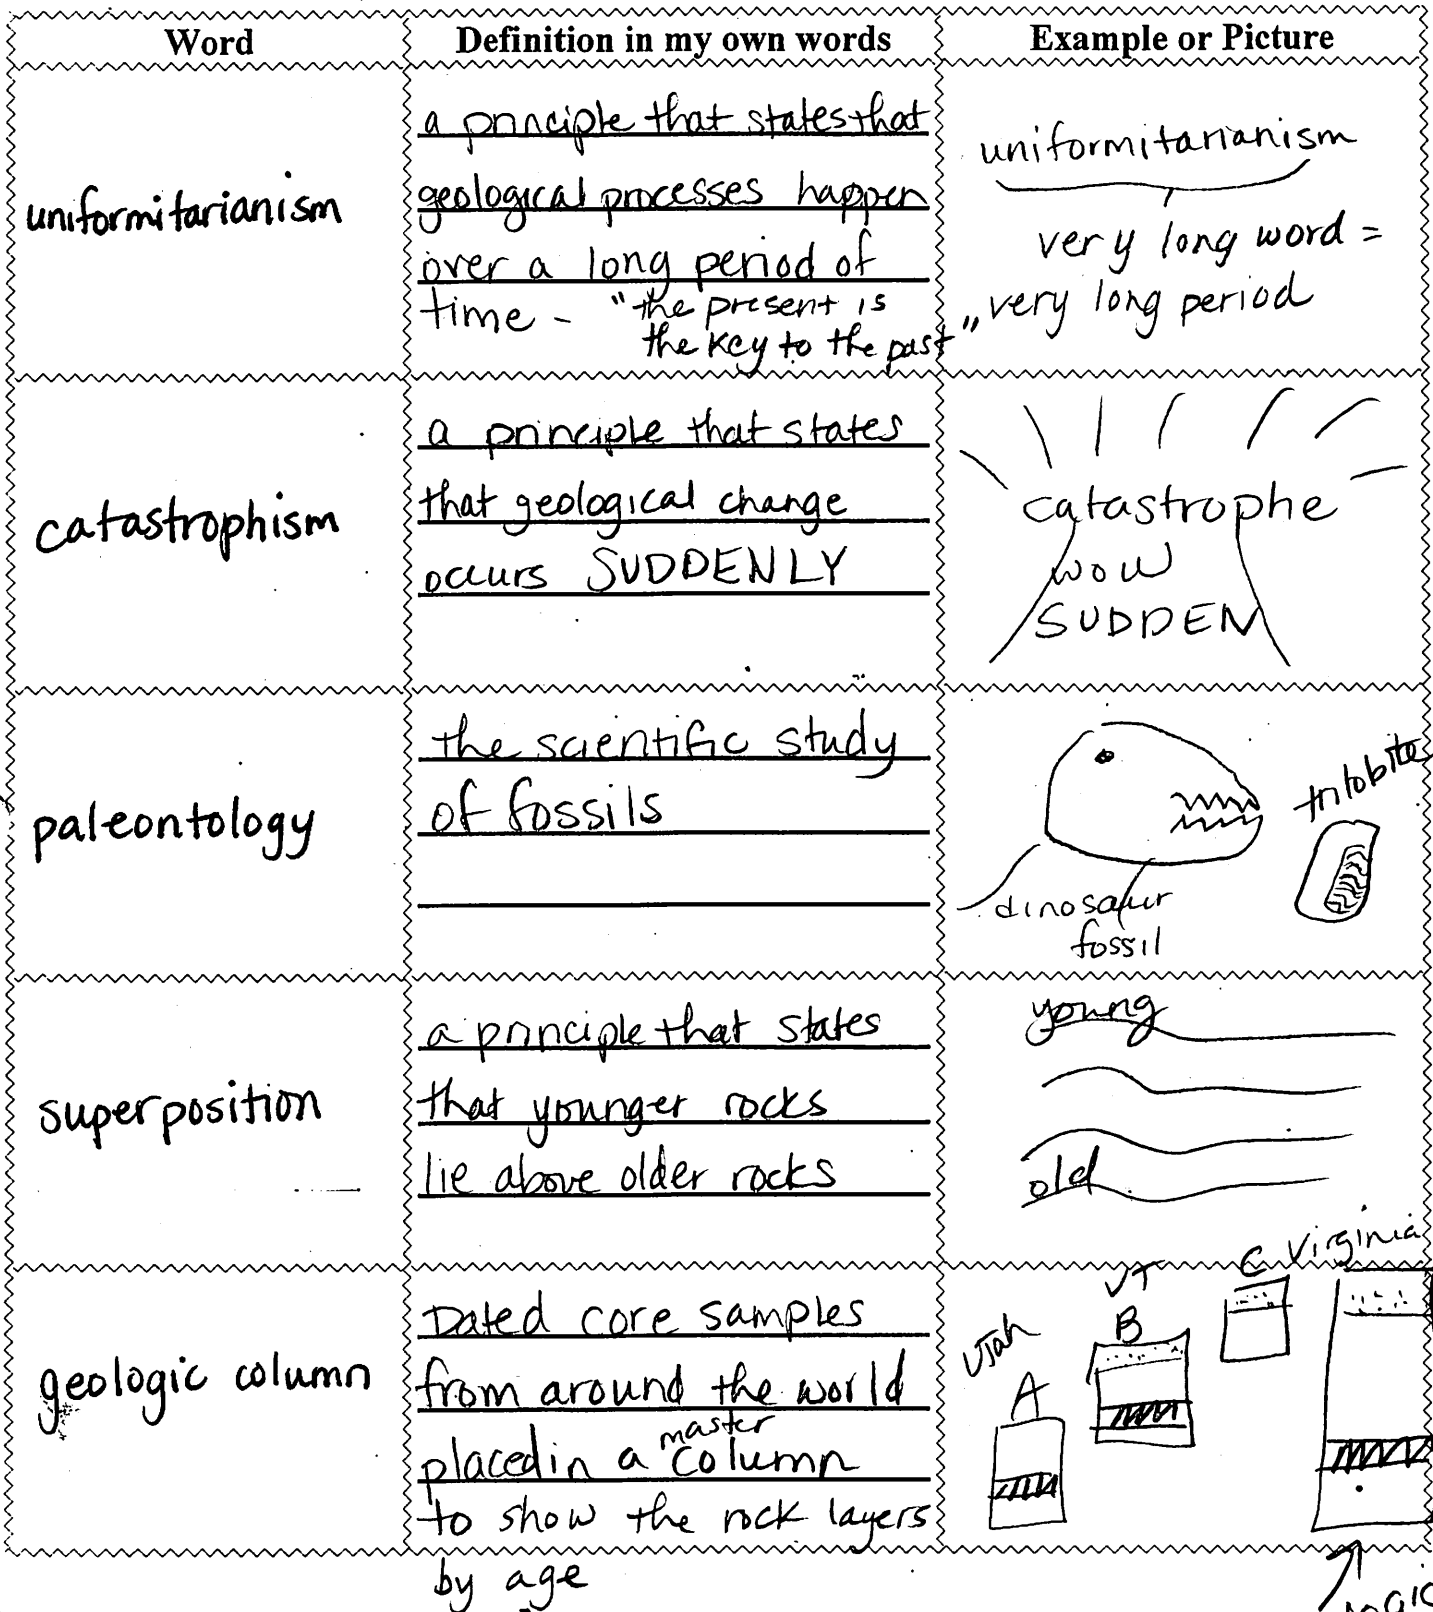 Word
Definition in my own words
Example or Picture
uniformitarianism
a principle that states that
geological processes happen
over a long period of
time - "the present is
the key to the past"
uniformitarianism
very long word =
very long period
catastrophism
a principle that states
that geological change
occurs SUDDENLY
catastrophe
WOW
SUDDEN
paleontology
the scientific study
of fossils
dinosaur
fossil
trilobite
superposition
a principle that states
that younger rocks
lie above older rocks
young
old
geologic column
Dated core samples
from around the world
placed in a master column
to show the rock layers
by age
Utah
A
VT
B
C Virginia